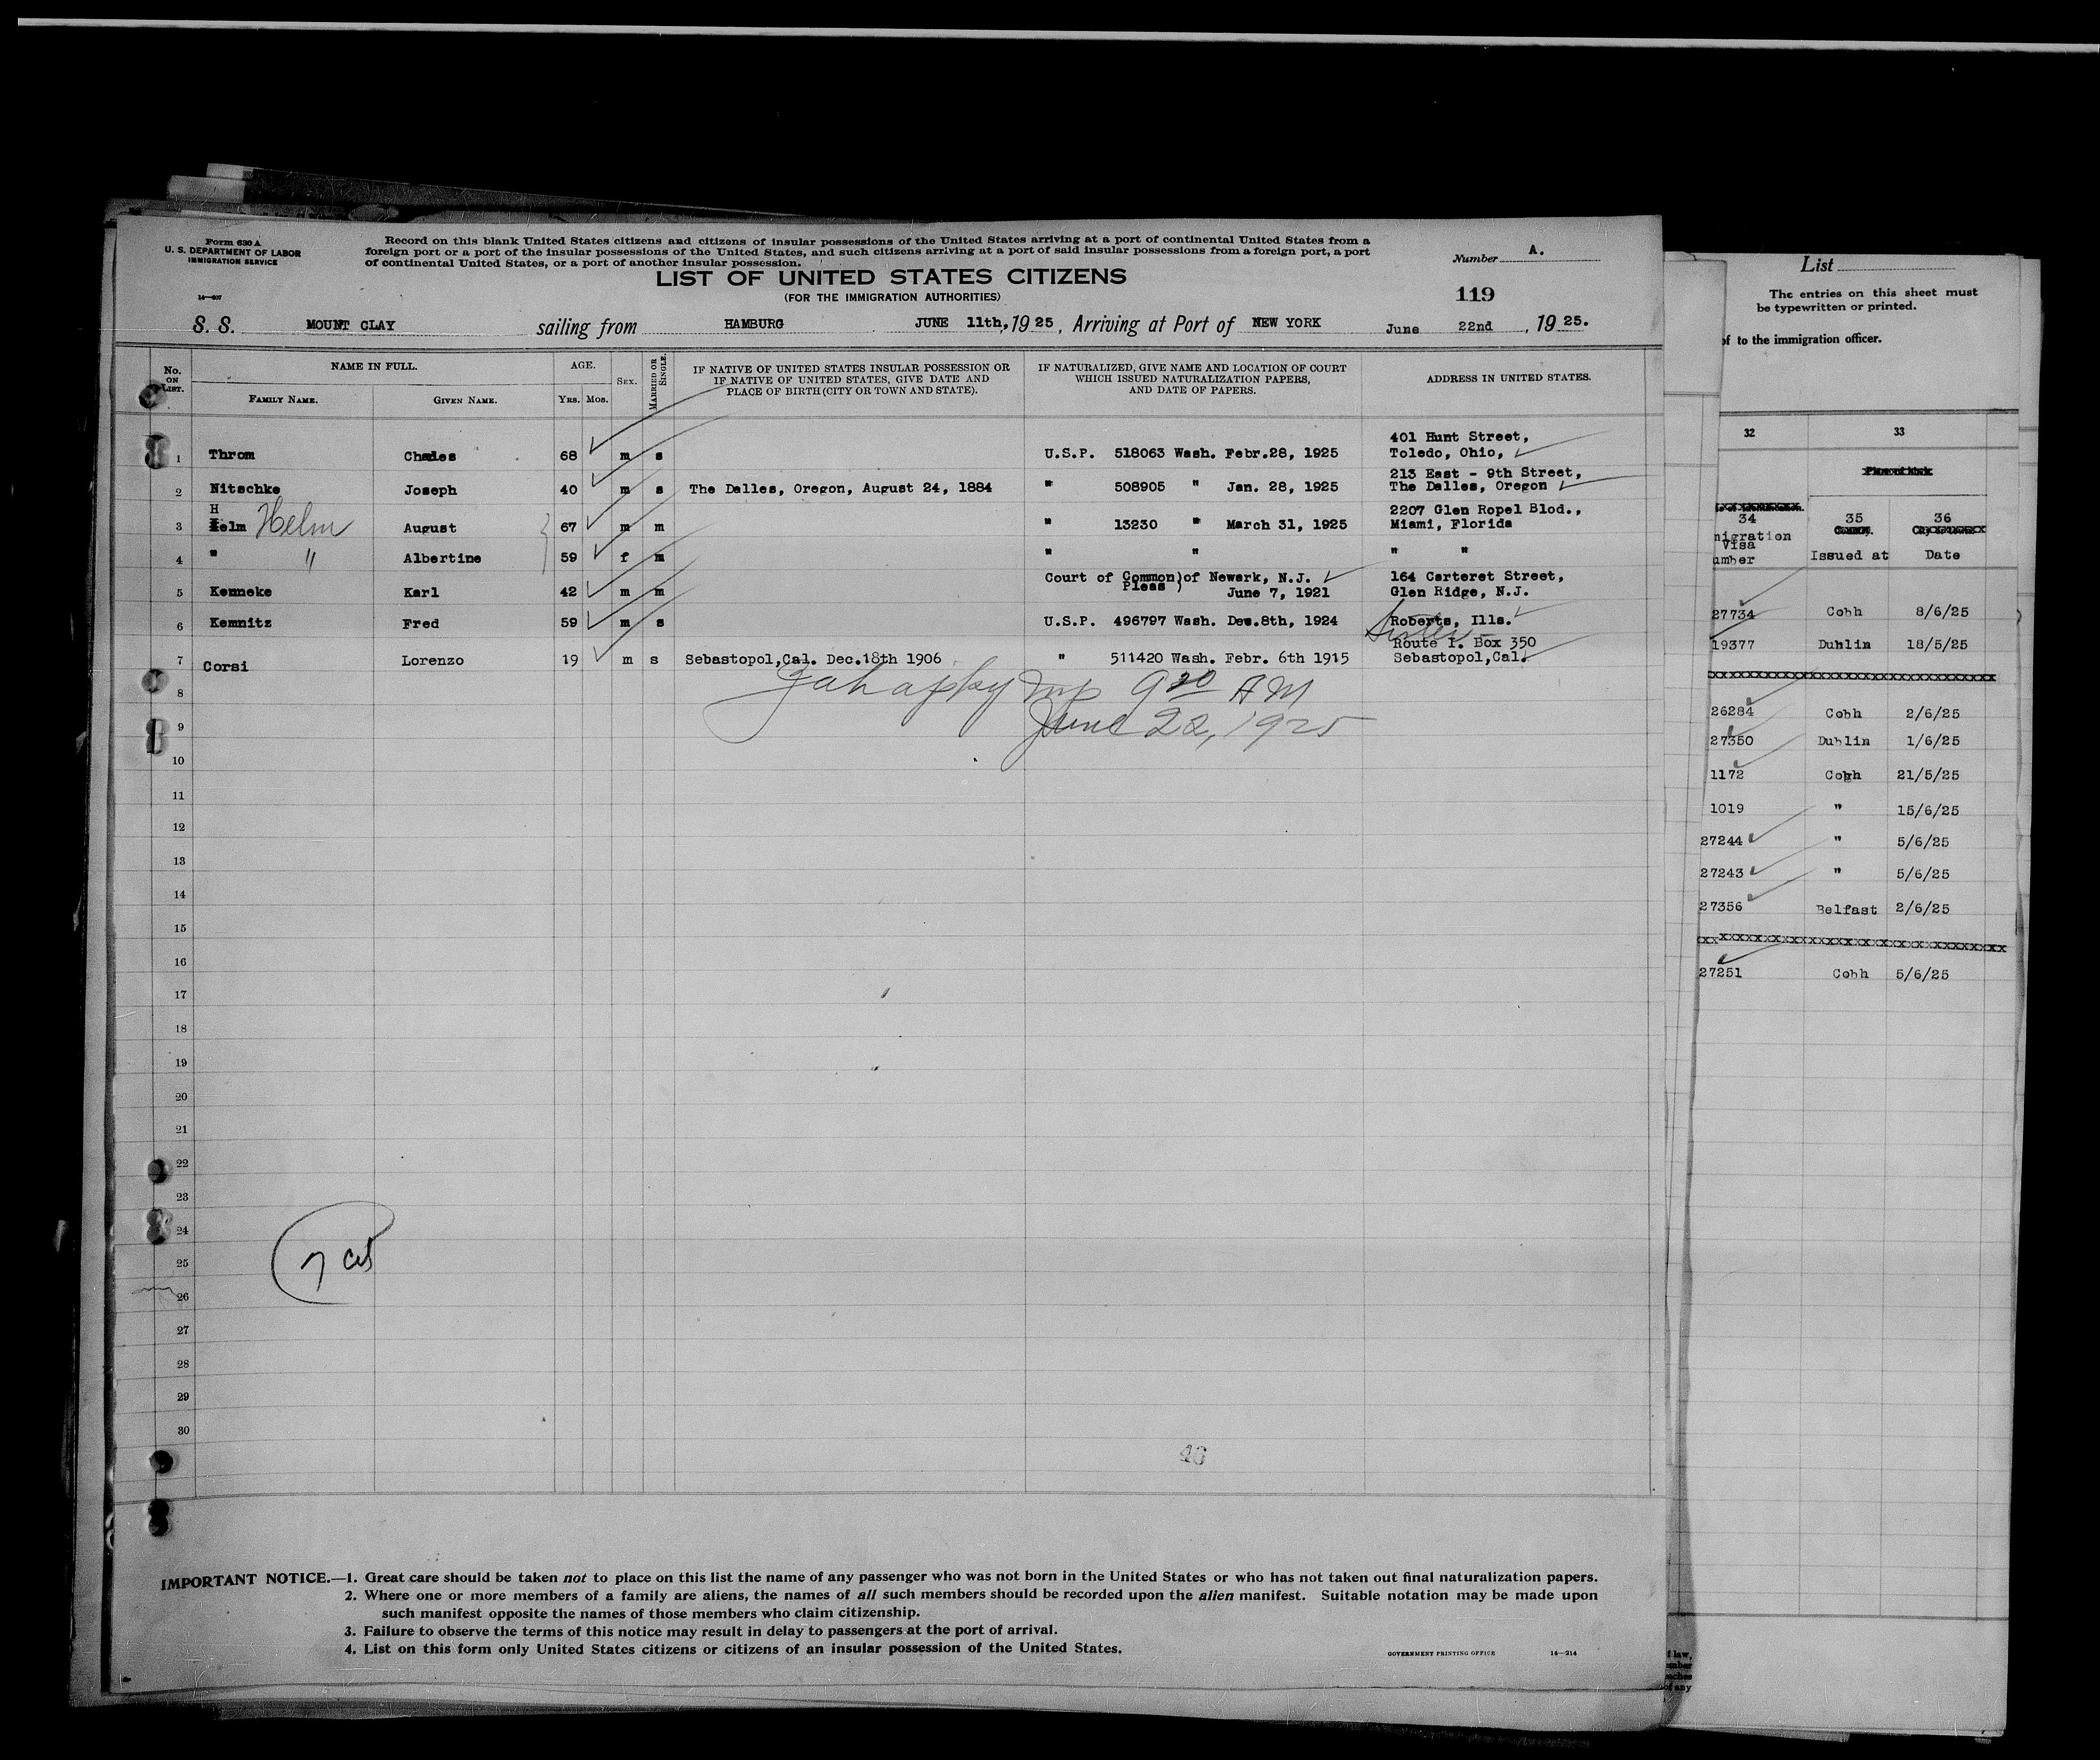 Form 630 A
U. S. DEPARTMENT OF LABOR
IMMIGRATION SERVICE
Record on this blank United States citizens and citizens of insular possessions of the United States arriving at a port of continental United States from a
foreign port or a port of the insular possessions of the United States, and such citizens arriving at a port of said insular possessions from a foreign port, a port
of continental United States, or a port of another insular possession.
LIST OF UNITED STATES CITIZENS
(FOR THE IMMIGRATION AUTHORITIES)
Number A.
119
14—607
S. S. MOUNT CLAY sailing from HAMBURG JUNE 11th, 1925, Arriving at Port of NEW YORK June 22nd, 1925.
No. ON LIST.
NAME IN FULL.
FAMILY NAME. GIVEN NAME.
AGE.
YRS. MOS.
SEX.
MARRIED OR SINGLE.
IF NATIVE OF UNITED STATES INSULAR POSSESSION OR
IF NATIVE OF UNITED STATES, GIVE DATE AND
PLACE OF BIRTH (CITY OR TOWN AND STATE).
IF NATURALIZED, GIVE NAME AND LOCATION OF COURT
WHICH ISSUED NATURALIZATION PAPERS,
AND DATE OF PAPERS.
ADDRESS IN UNITED STATES.
401 Hunt Street,
1 Throm Chales 68 m s U.S.P. 518063 Wash. Febr.28, 1925 Toledo, Ohio,
213 East - 9th Street,
2 Nitschke Joseph 40 m s The Dalles, Oregon, August 24, 1884 " 508905 " Jan. 28, 1925 The Dalles, Oregon
H 2207 Glen Ropel Blod.,
3 elm Helm August 67 m m " 13230 " March 31, 1925 Miami, Florida
4 " " Albertine 59 f m " " " "
Court of Common) of Newark, N.J. 164 Carteret Street,
Pleas )
5 Kenneke Karl 42 m m June 7, 1921 Glen Ridge, N.J.
6 Kemnitz Fred 59 m s U.S.P. 496797 Wash. Dec.8th, 1924 Roberts, Ills.
Route I. Box 350
7 Corsi Lorenzo 19 m s Sebastopol,Cal. Dec.18th 1906 " 511420 Wash. Febr. 6th 1915 Sebastopol,Cal.
Insp 9 30 AM
8
June 22, 1925
9
10
11
12
13
14
15
16
17
18
19
20
21
22
23
24
25
26
27
28
29
30
IMPORTANT NOTICE.—1. Great care should be taken not to place on this list the name of any passenger who was not born in the United States or who has not taken out final naturalization papers.
2. Where one or more members of a family are aliens, the names of all such members should be recorded upon the alien manifest. Suitable notation may be made upon
such manifest opposite the names of those members who claim citizenship.
3. Failure to observe the terms of this notice may result in delay to passengers at the port of arrival.
4. List on this form only United States citizens or citizens of an insular possession of the United States.
GOVERNMENT PRINTING OFFICE 14—214
List
The entries on this sheet must
be typewritten or printed.
of to the immigration officer.
32 33
34 35 36
migration
Visa
umber Issued at Date
27734 Cobh 8/6/25
19377 Dublin 18/5/25
xxxxxxxxxxxxxxxxxxxxxxxxxxxxxxxxxx
26284 Cobh 2/6/25
27350 Dublin 1/6/25
1172 Cogh 21/5/25
1019 " 15/6/25
27244 " 5/6/25
27243 " 5/6/25
27356 Belfast 2/6/25
xxxxxxxxxxxxxxxxxxxxxxxxxxxxxxxxxx
27251 Cobh 5/6/25
f law,
ember
aches
of any